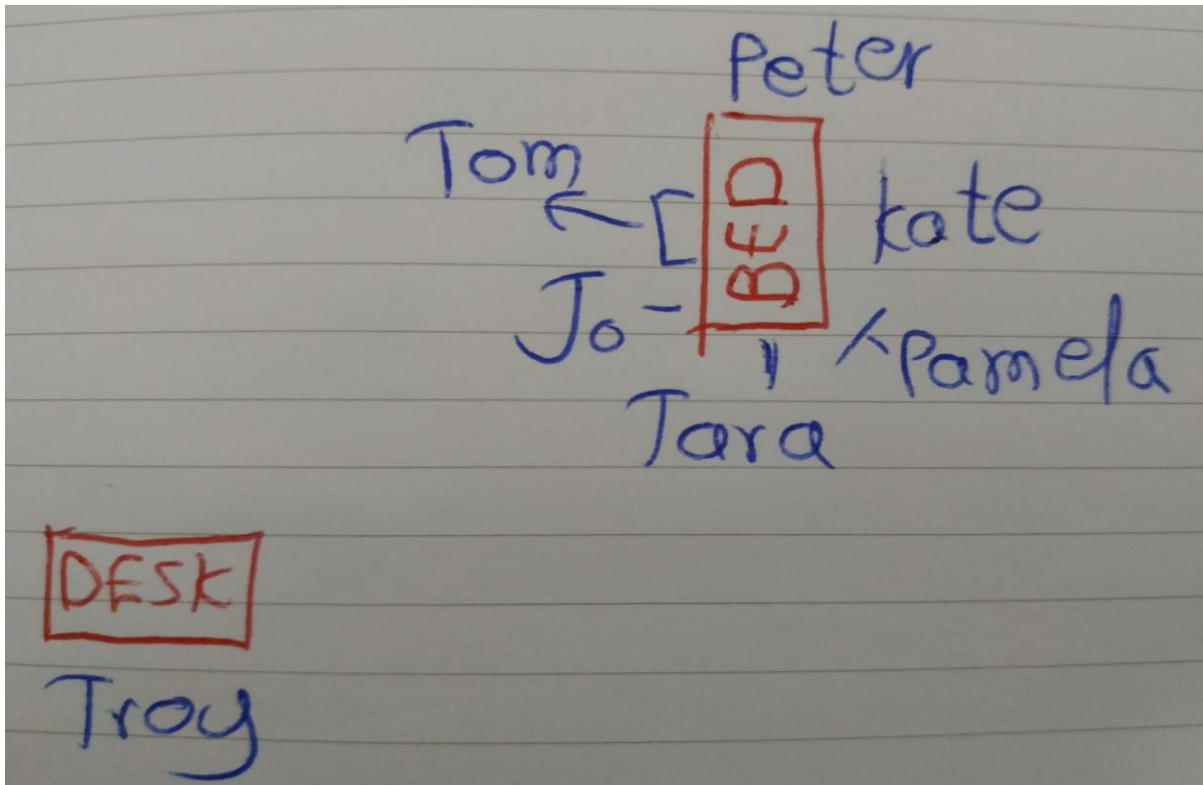 Peter
Tom
BED
kate
Jo
Pamela
Tara
DESK
Troy